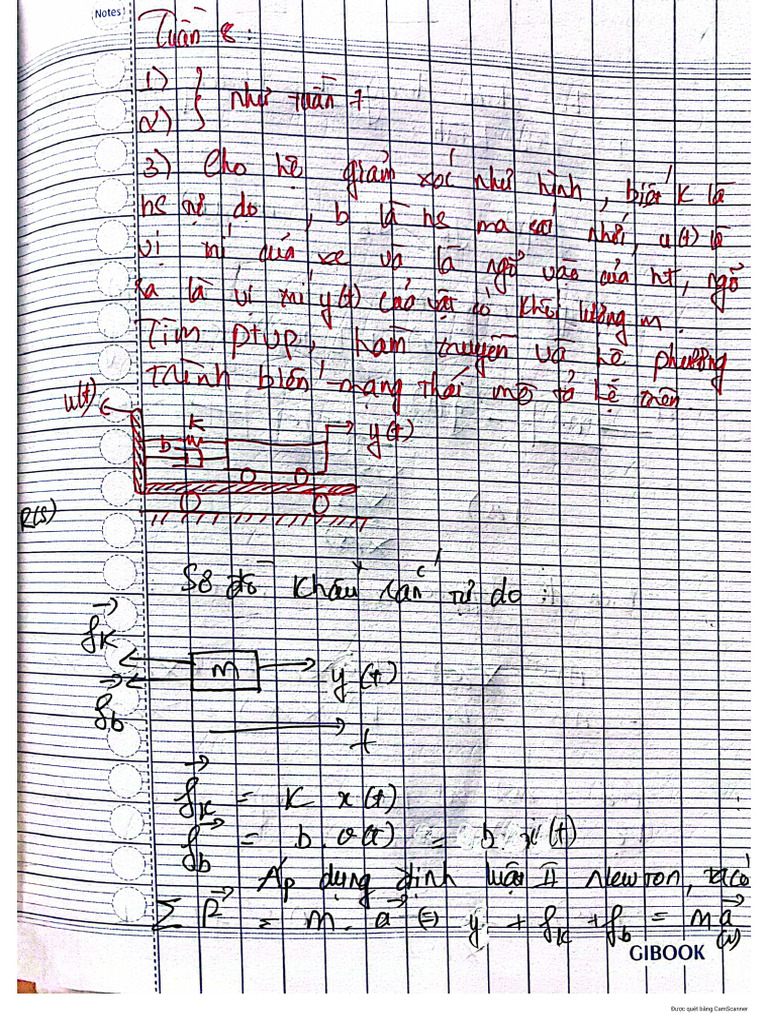 Notes
Tuần 8:
1)
2)
như tuần 7
3) Cho hệ giảm xóc như hình, biết K là
hs độ do, b là hs ma sát nhớt, u(t) là
vị trí của xe và là ngõ vào của ht, ngõ
ra là vị trí y(t) của vật có khối lượng m.
Tìm ptvp, hàm truyền và hệ phương
trình biến trạng thái mô tả hệ trên
u(t)
K
b
y(t)
R(s)
Sơ đồ khảu căn tự do:
fK
m
y(t)
fb
+
fK = K x(t)
fb = b. v(t) = b. ẋ(t)
Áp dụng định luật II Newton, ta có
∑ F = m. a ⇔ y + fK + fb = ma
(1)
GIBOOK
Được quét bằng CamScanner